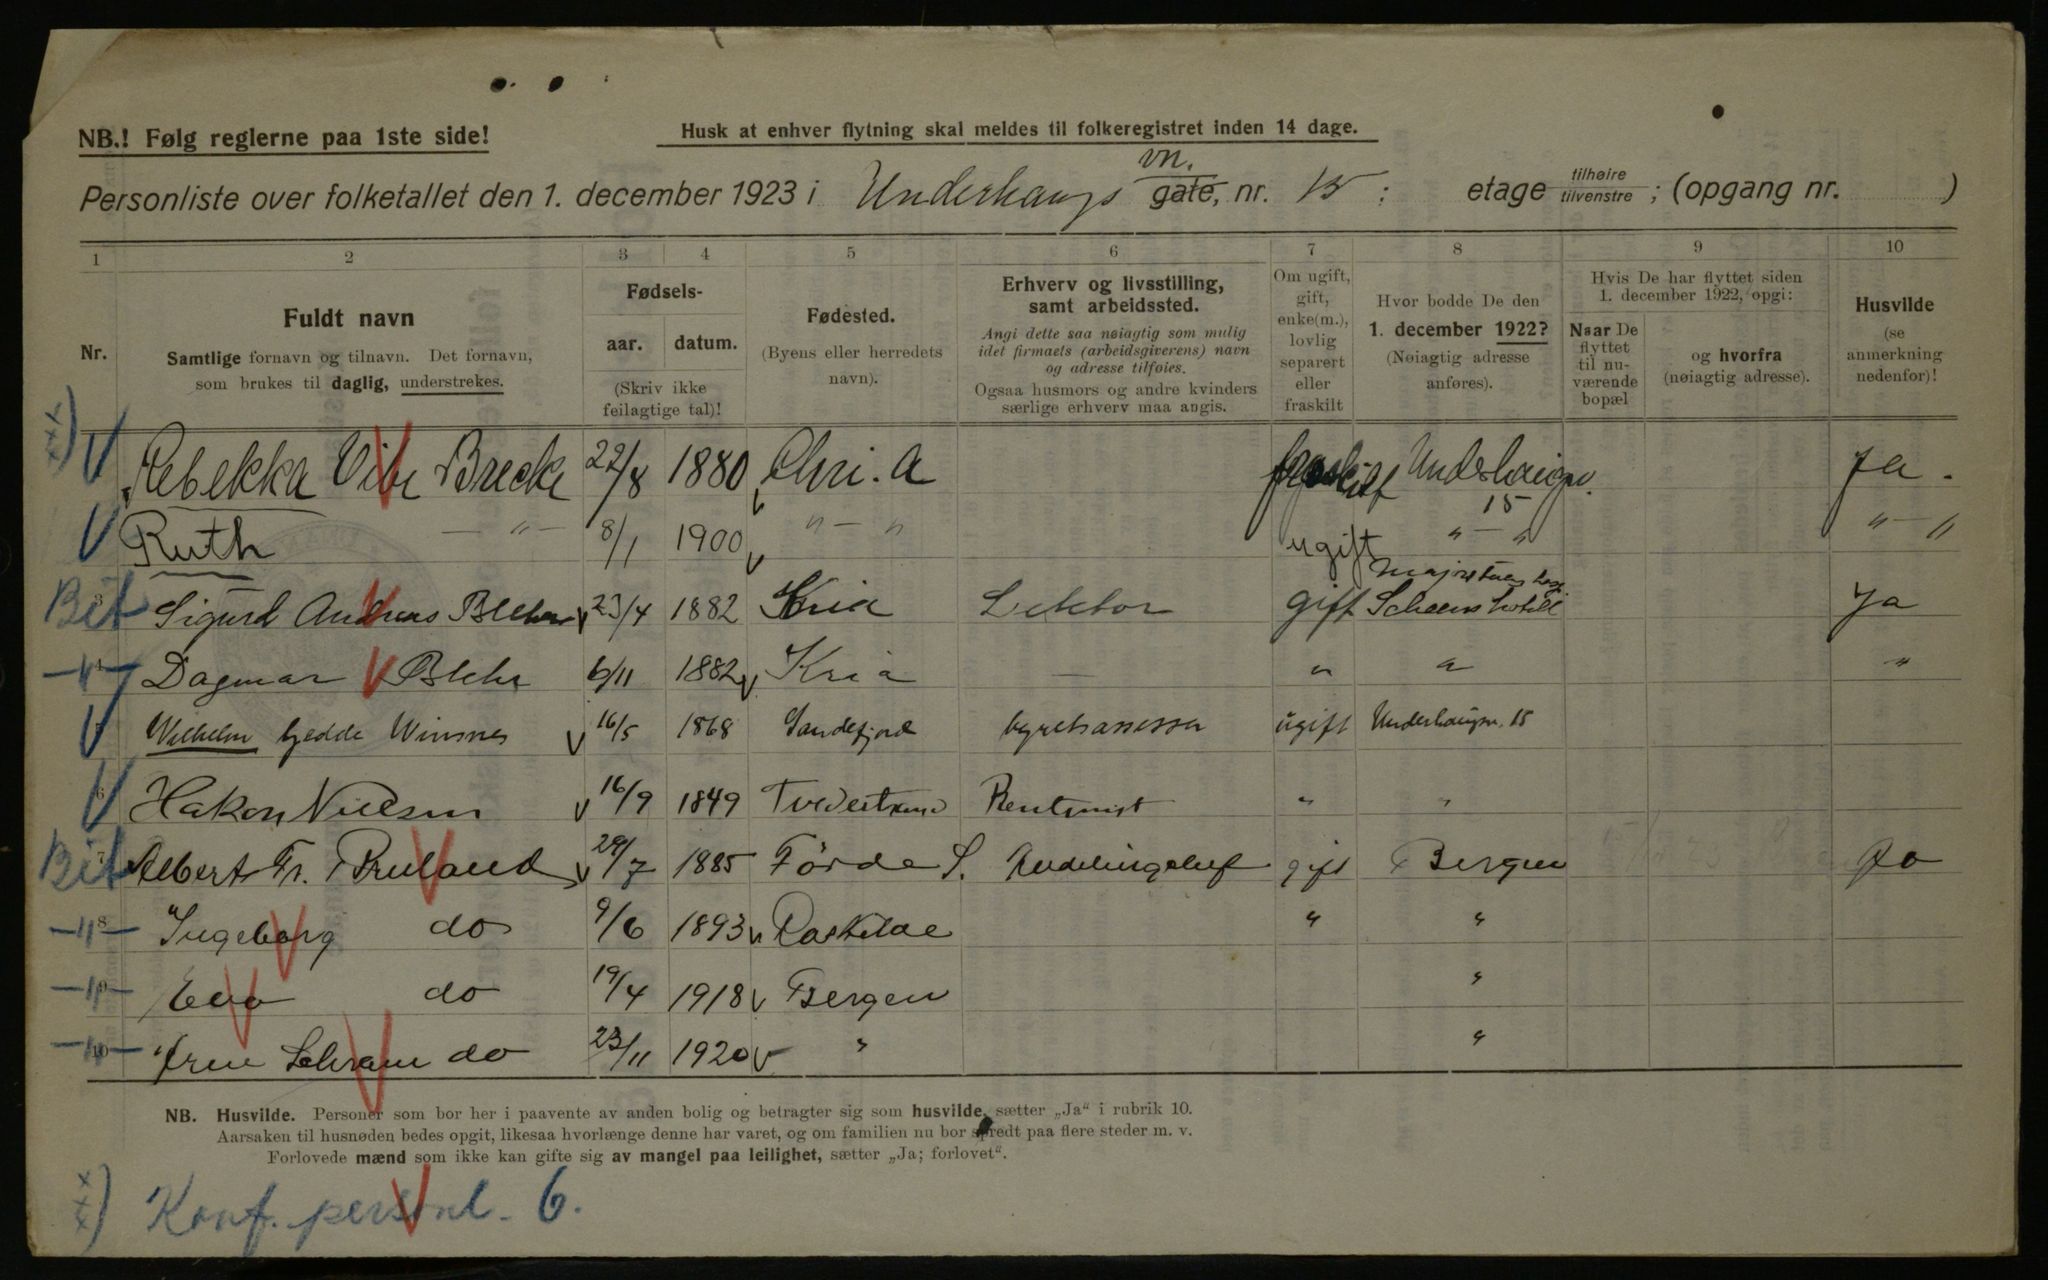 NB.! Følg reglerne paa 1ste side!
Husk at enhver flytning skal meldes til folkeregistret inden 14 dage.
vn.
Personliste over folketallet den 1. december 1923 i Underhaugs gate, nr. 15 ; etage tilhøire tilvenstre ; (opgang nr. )
1 2 3 4 5 6 7 8 9 10
Nr.
Fuldt navn
Samtlige fornavn og tilnavn. Det fornavn,
som brukes til daglig, understrekes.
Fødsels-
aar. datum.
(Skriv ikke
feilagtige tal)!
Fødested.
(Byens eller herredets
navn).
Erhverv og livsstilling,
samt arbeidssted.
Angi dette saa nøiagtig som mulig
idet firmaets (arbeidsgiverens) navn
og adresse tilføies.
Ogsaa husmors og andre kvinders
særlige erhverv maa angis.
Om ugift,
gift,
enke(m.),
lovlig
separert
eller
fraskilt
Hvor bodde De den
1. december 1922?
(Nøiagtig adresse
anføres).
Hvis De har flyttet siden
1. december 1922, opgi:
Naar De
flyttet
til nu-
værende
bopæl
og hvorfra
(nøiagtig adresse).
Husvilde
(se
anmerkning
nedenfor)!
xxx) V Rebekka Vibe Brecke 22/8 1880 Chri.a fraskilt Underhaugsv. 15 Ja.
V Ruth — " — 8/1 1900 " — " ugift " — " " — "
Bit 3 Sigurd Andreas Blehr 23/4 1882 Kria Lektor gift Scheens hotell Ja
— " — 4 Dagmar Blehr 6/11 1882 Kria — " " "
V 5 Wilhelm Gjedde Winsnes 16/5 1868 Sandefjord byretsassessor ugift Underhaugsv. 15
V 6 Hakon Nielsen 16/9 1849 Tvedestrand Rentenist " "
Bit 7 Albert Fr. Bruland 29/7 1885 Förde S. Avdelingschef gift Bergen Ja
— " — 8 Ingeborg do 9/6 1893 Roskilde " "
— " — 9 Eva do 19/4 1918 Bergen "
— " — 10 Schram do 23/11 1920 " "
NB. Husvilde. Personer som bor her i paavente av anden bolig og betragter sig som husvilde, sætter „Ja“ i rubrik 10.
Aarsaken til husnøden bedes opgit, likesaa hvorlænge denne har varet, og om familien nu bor spredt paa flere steder m. v.
Forlovede mænd som ikke kan gifte sig av mangel paa leilighet, sætter „Ja; forlovet“.
xxx) Konf. personl. 6.